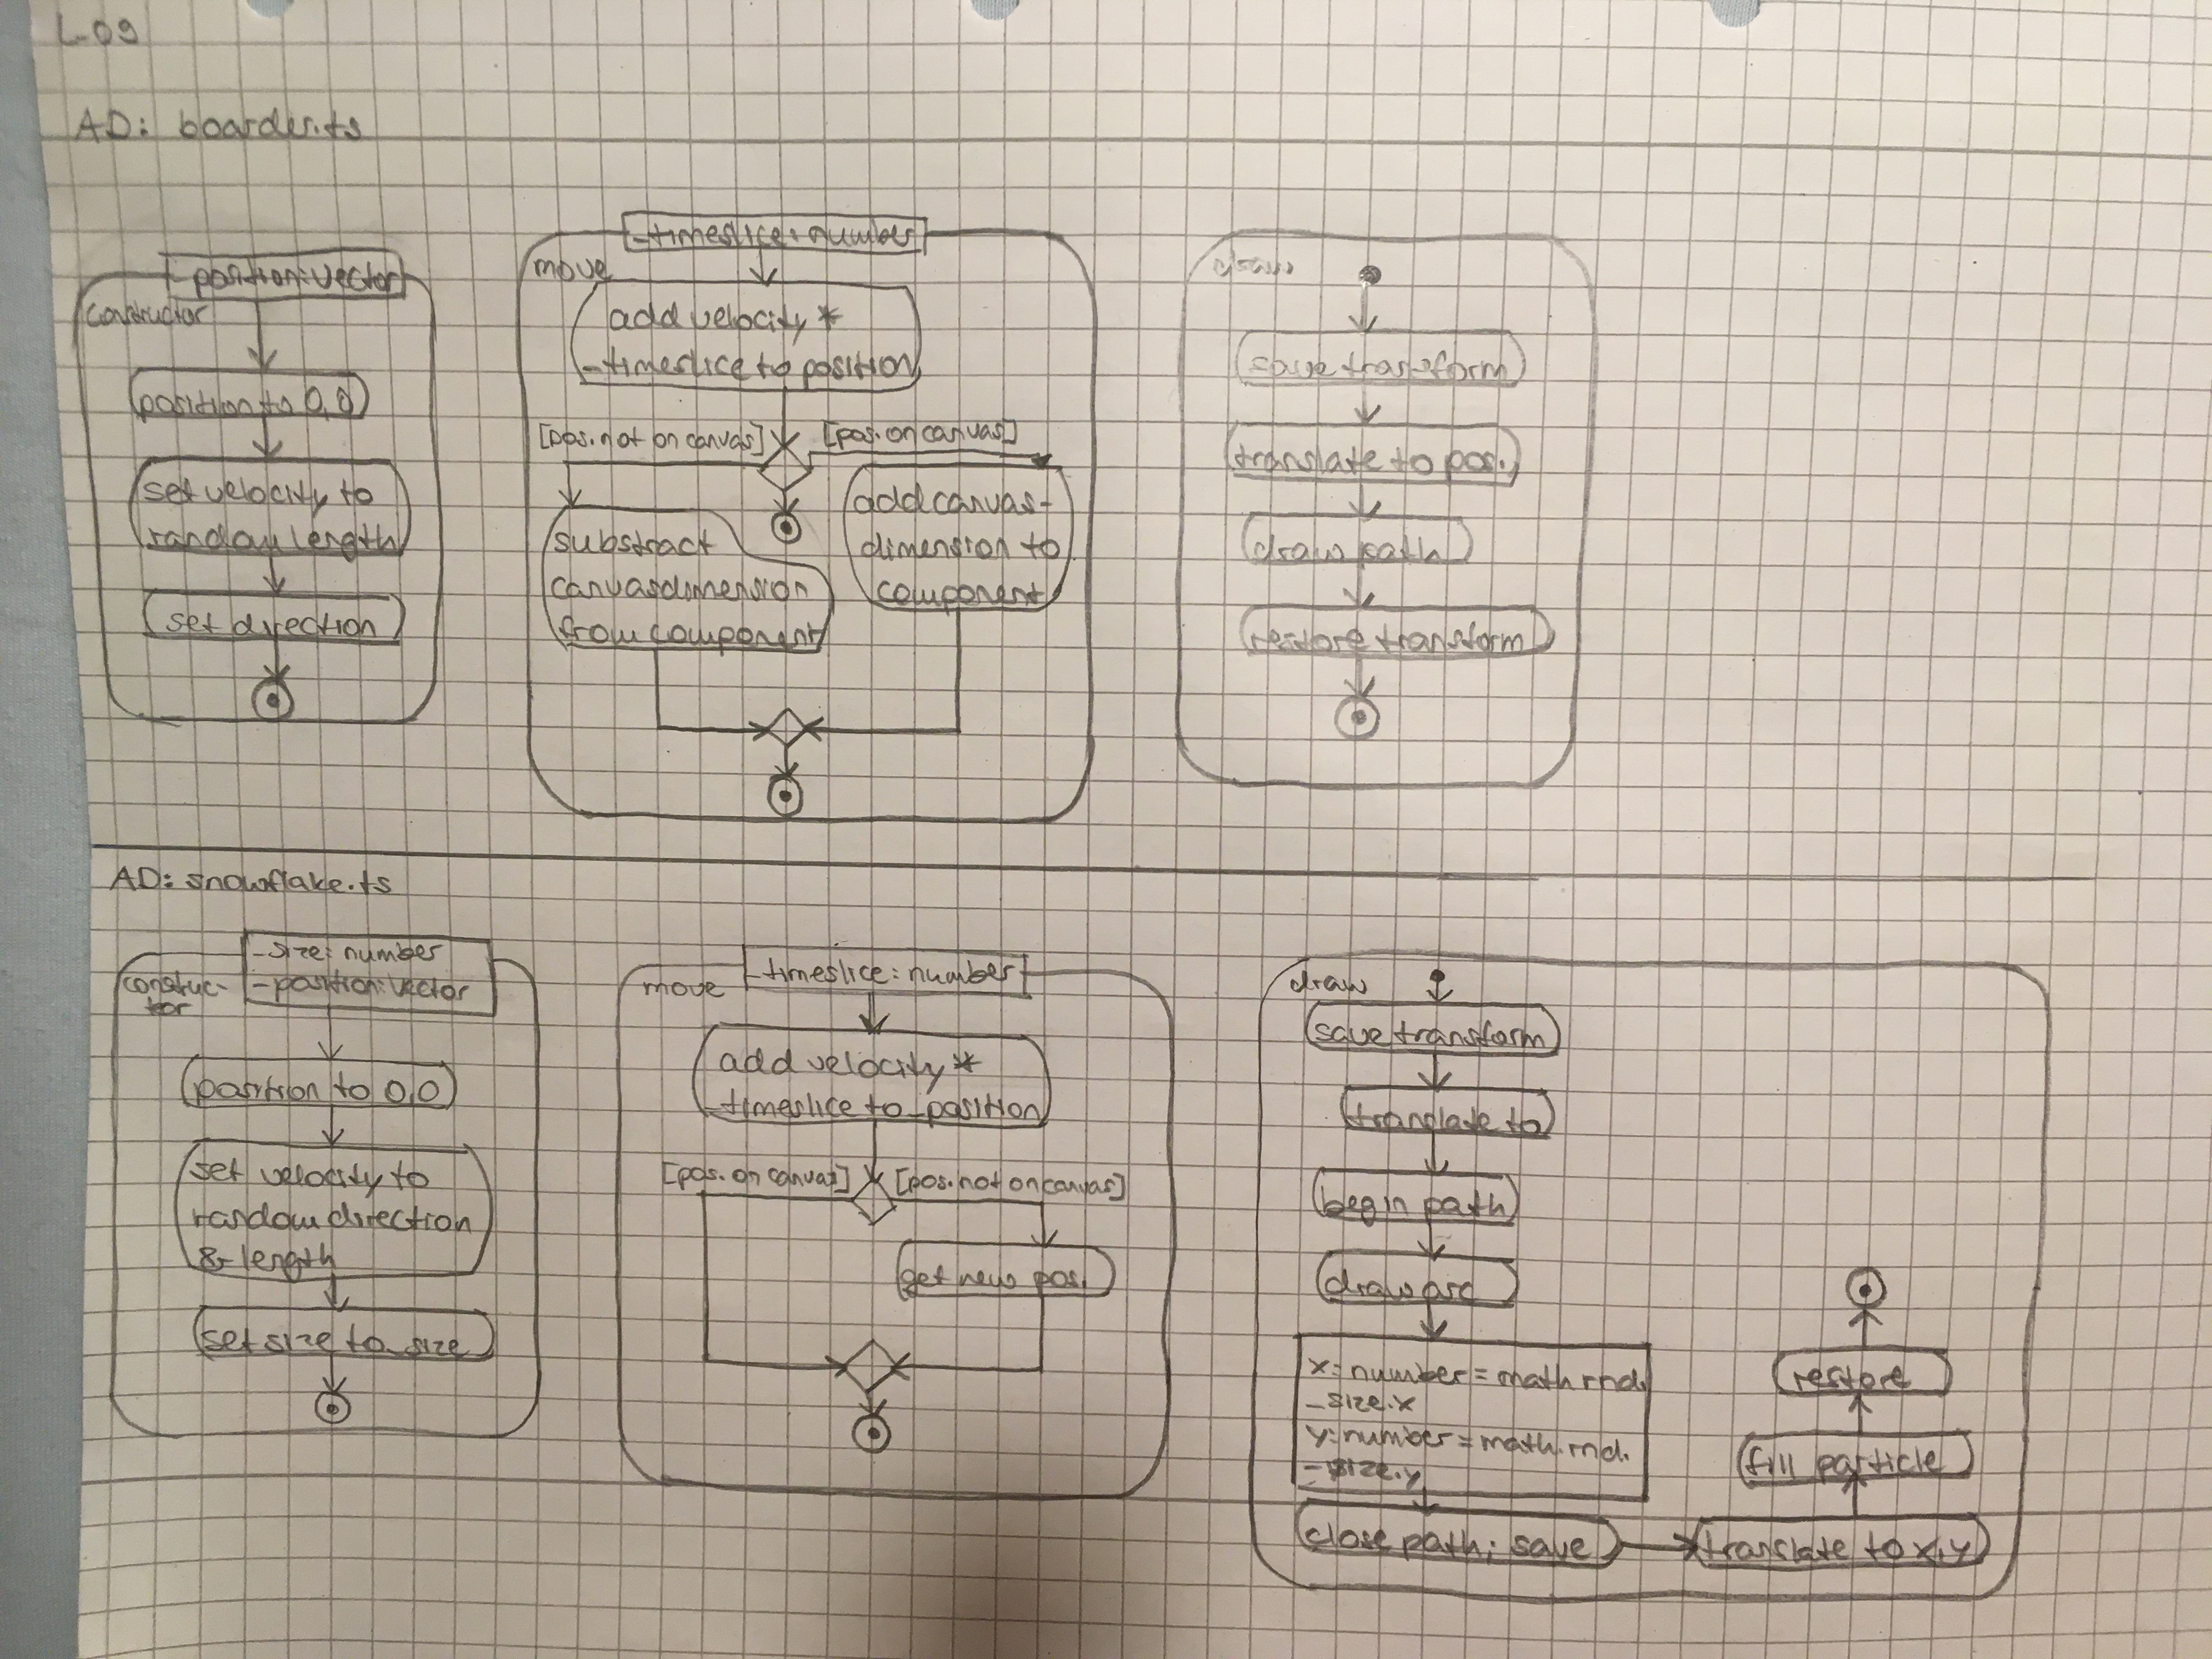 L-09
AD: boarder.ts
_position:vector
constructor
position to 0,0
set velocity to
random length
set direction
_timeslice:number
move
add velocity *
_timeslice to position
[pos.not on canvas]
[pos.on canvas]
substract
canvasdimension
from component
add canvas-
dimension to
component
draw
save transform
translate to pos.
draw path
restore transform
AD: snowflake.ts
_size: number
_position:vector
construc-
tor
position to 0,0
set velocity to
random direction
& length
set size to _size
_timeslice: number
move
add velocity *
_timeslice to _position
[pos. on canvas]
[pos.not on canvas]
get new pos.
draw
save transform
translate to
begin path
draw arc
x: number = math rnd.
_size.x
y: number = math.rnd.
_size.y
close path; save
translate to x,y
fill particle
restore